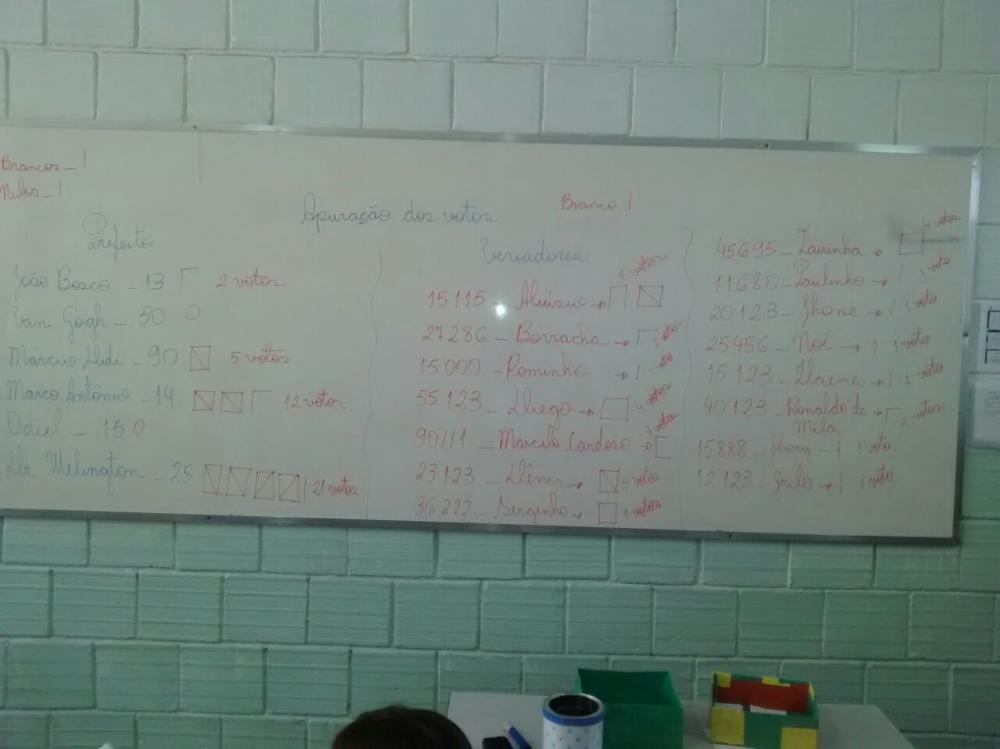 Brancos - 1
Nulos - 1
Apuração dos votos
Branco 1
Prefeito
João Bosco - 13 2 votos
Van Gogh - 50 0
Márcio Didi - 90 5 votos
Marco Antônio - 14 12 votos
Odiel - 15 0
Dr Welington - 25 21 votos
Vereadores
15115 - Aluisio → votos
27286 - Borracha →
15000 - Rominho → 1 voto
55123 - Dhiego → votos
90111 - Marcelo Cardoso → votos
23123 - Dênis → 5 votos
36222 - Serginho → votos
45695 - Zairinha → 4 votos
11680 - Paulinho → 1 1 voto
20123 - Jhone → 1 1 voto
25456 - Noé → 1 1 voto
15123 - Ilaene → 1 1 voto
40123 - Ronaldo da Mila → votos
15888 - Jhony - 1 1 voto
12123 - Grilo → 1 1 voto